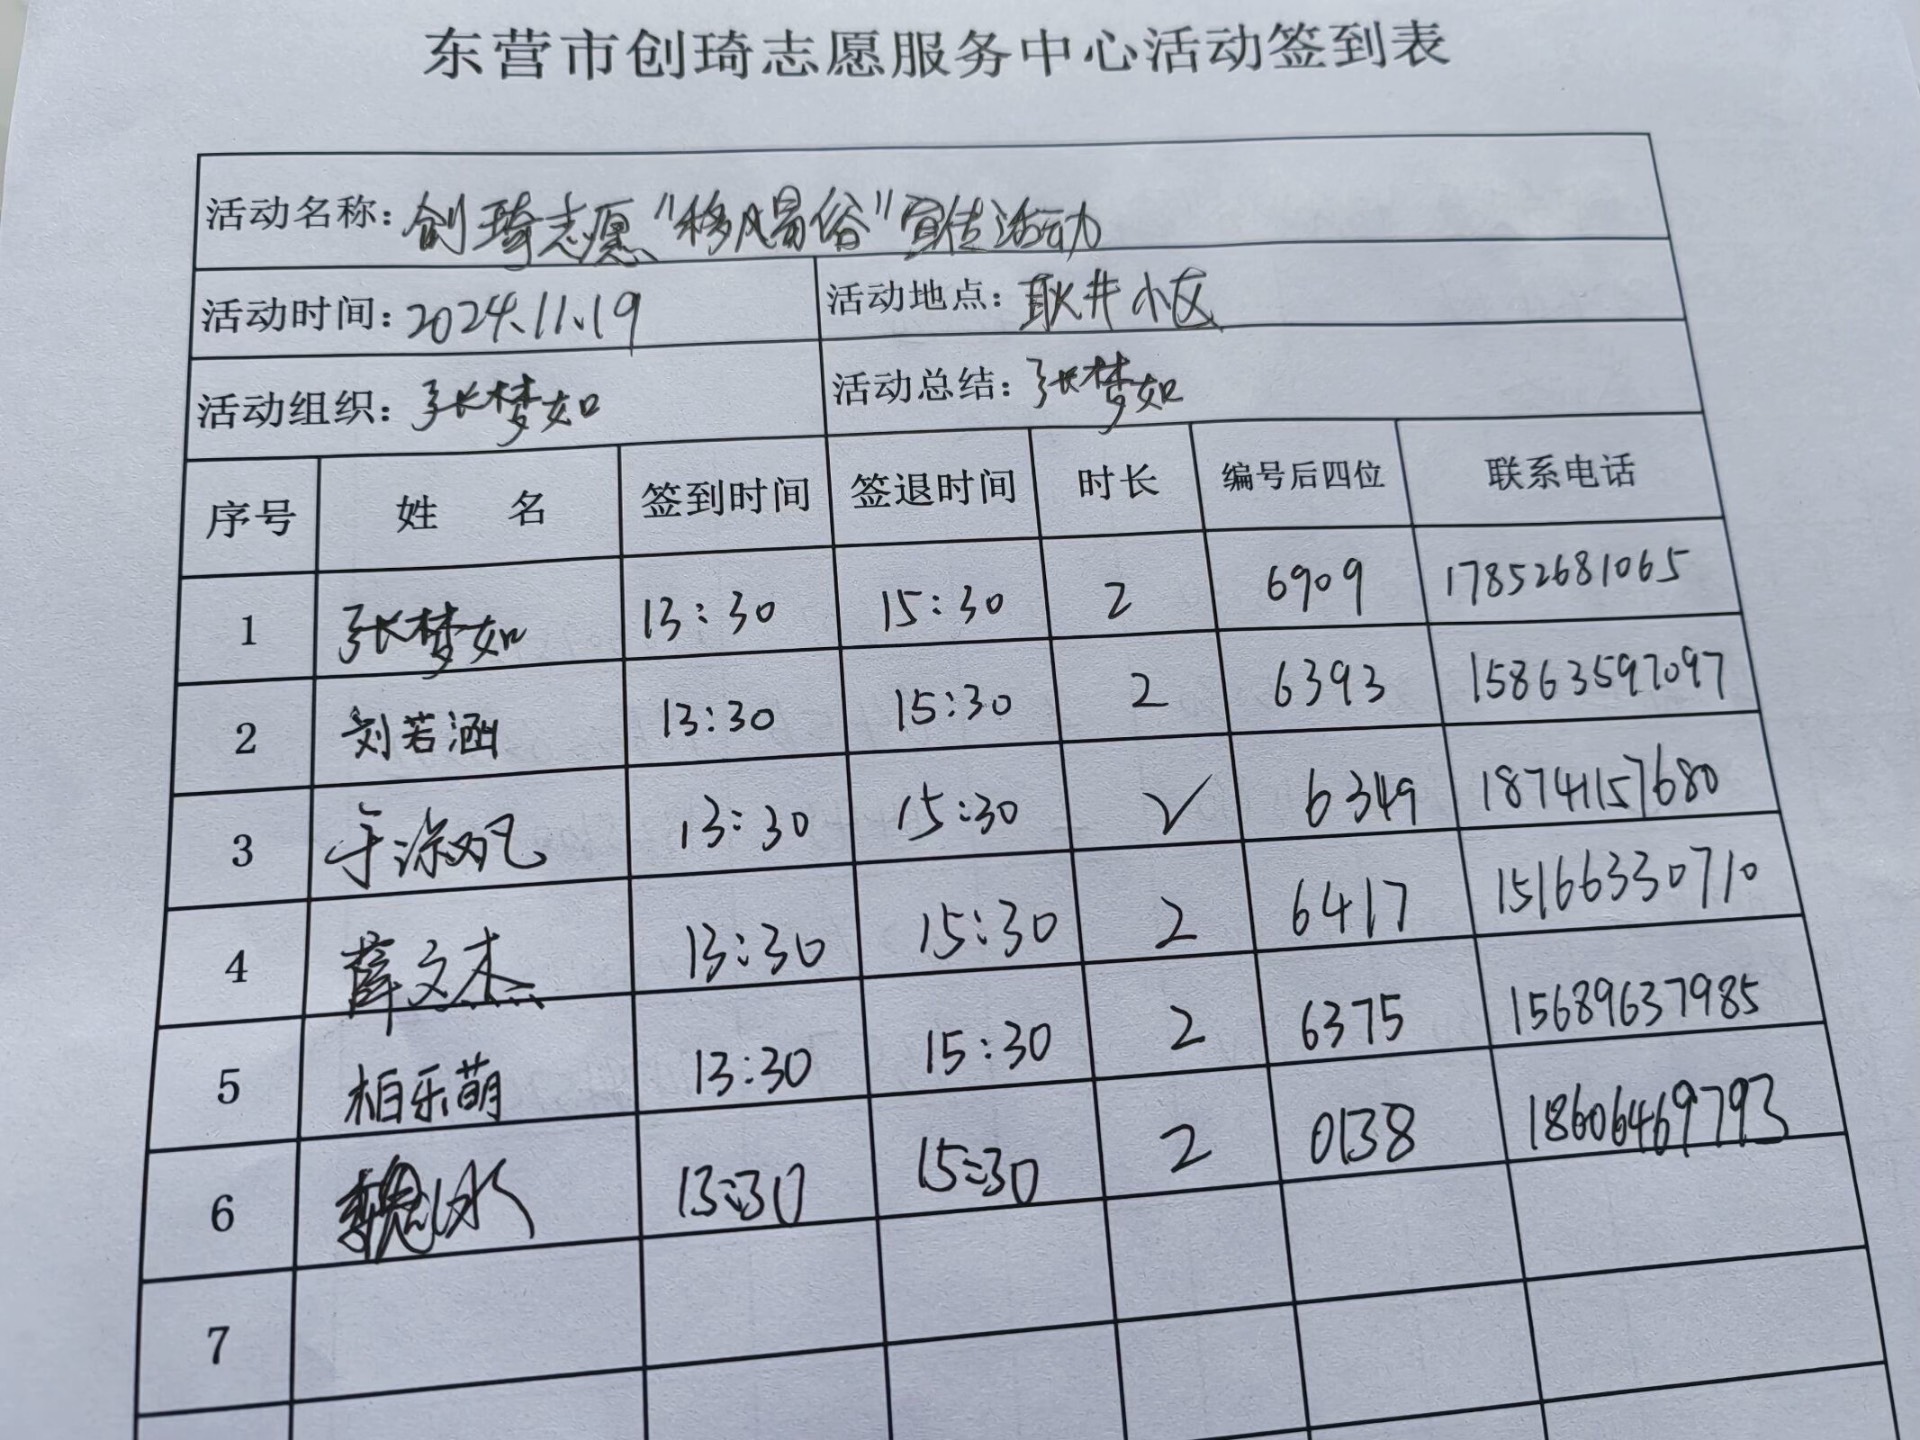 东营市创琦志愿服务中心活动签到表
活动名称：创琦志愿“移风易俗”宣传活动
活动时间：2024.11.19 活动地点：耿井小区
活动组织：张梦如 活动总结：张梦如
序号 姓 名 签到时间 签退时间 时长 编号后四位 联系电话
1 张梦如 13:30 15:30 2 6909 17852681065
2 刘若涵 13:30 15:30 2 6393 15863597097
3 于 13:30 15:30 √ 6349 18741157680
4 薛文杰 13:30 15:30 2 6417 15166330710
5 柏乐萌 13:30 15:30 2 6375 15689637985
6 魏冰 13:30 15:30 2 0138 18606469793
7